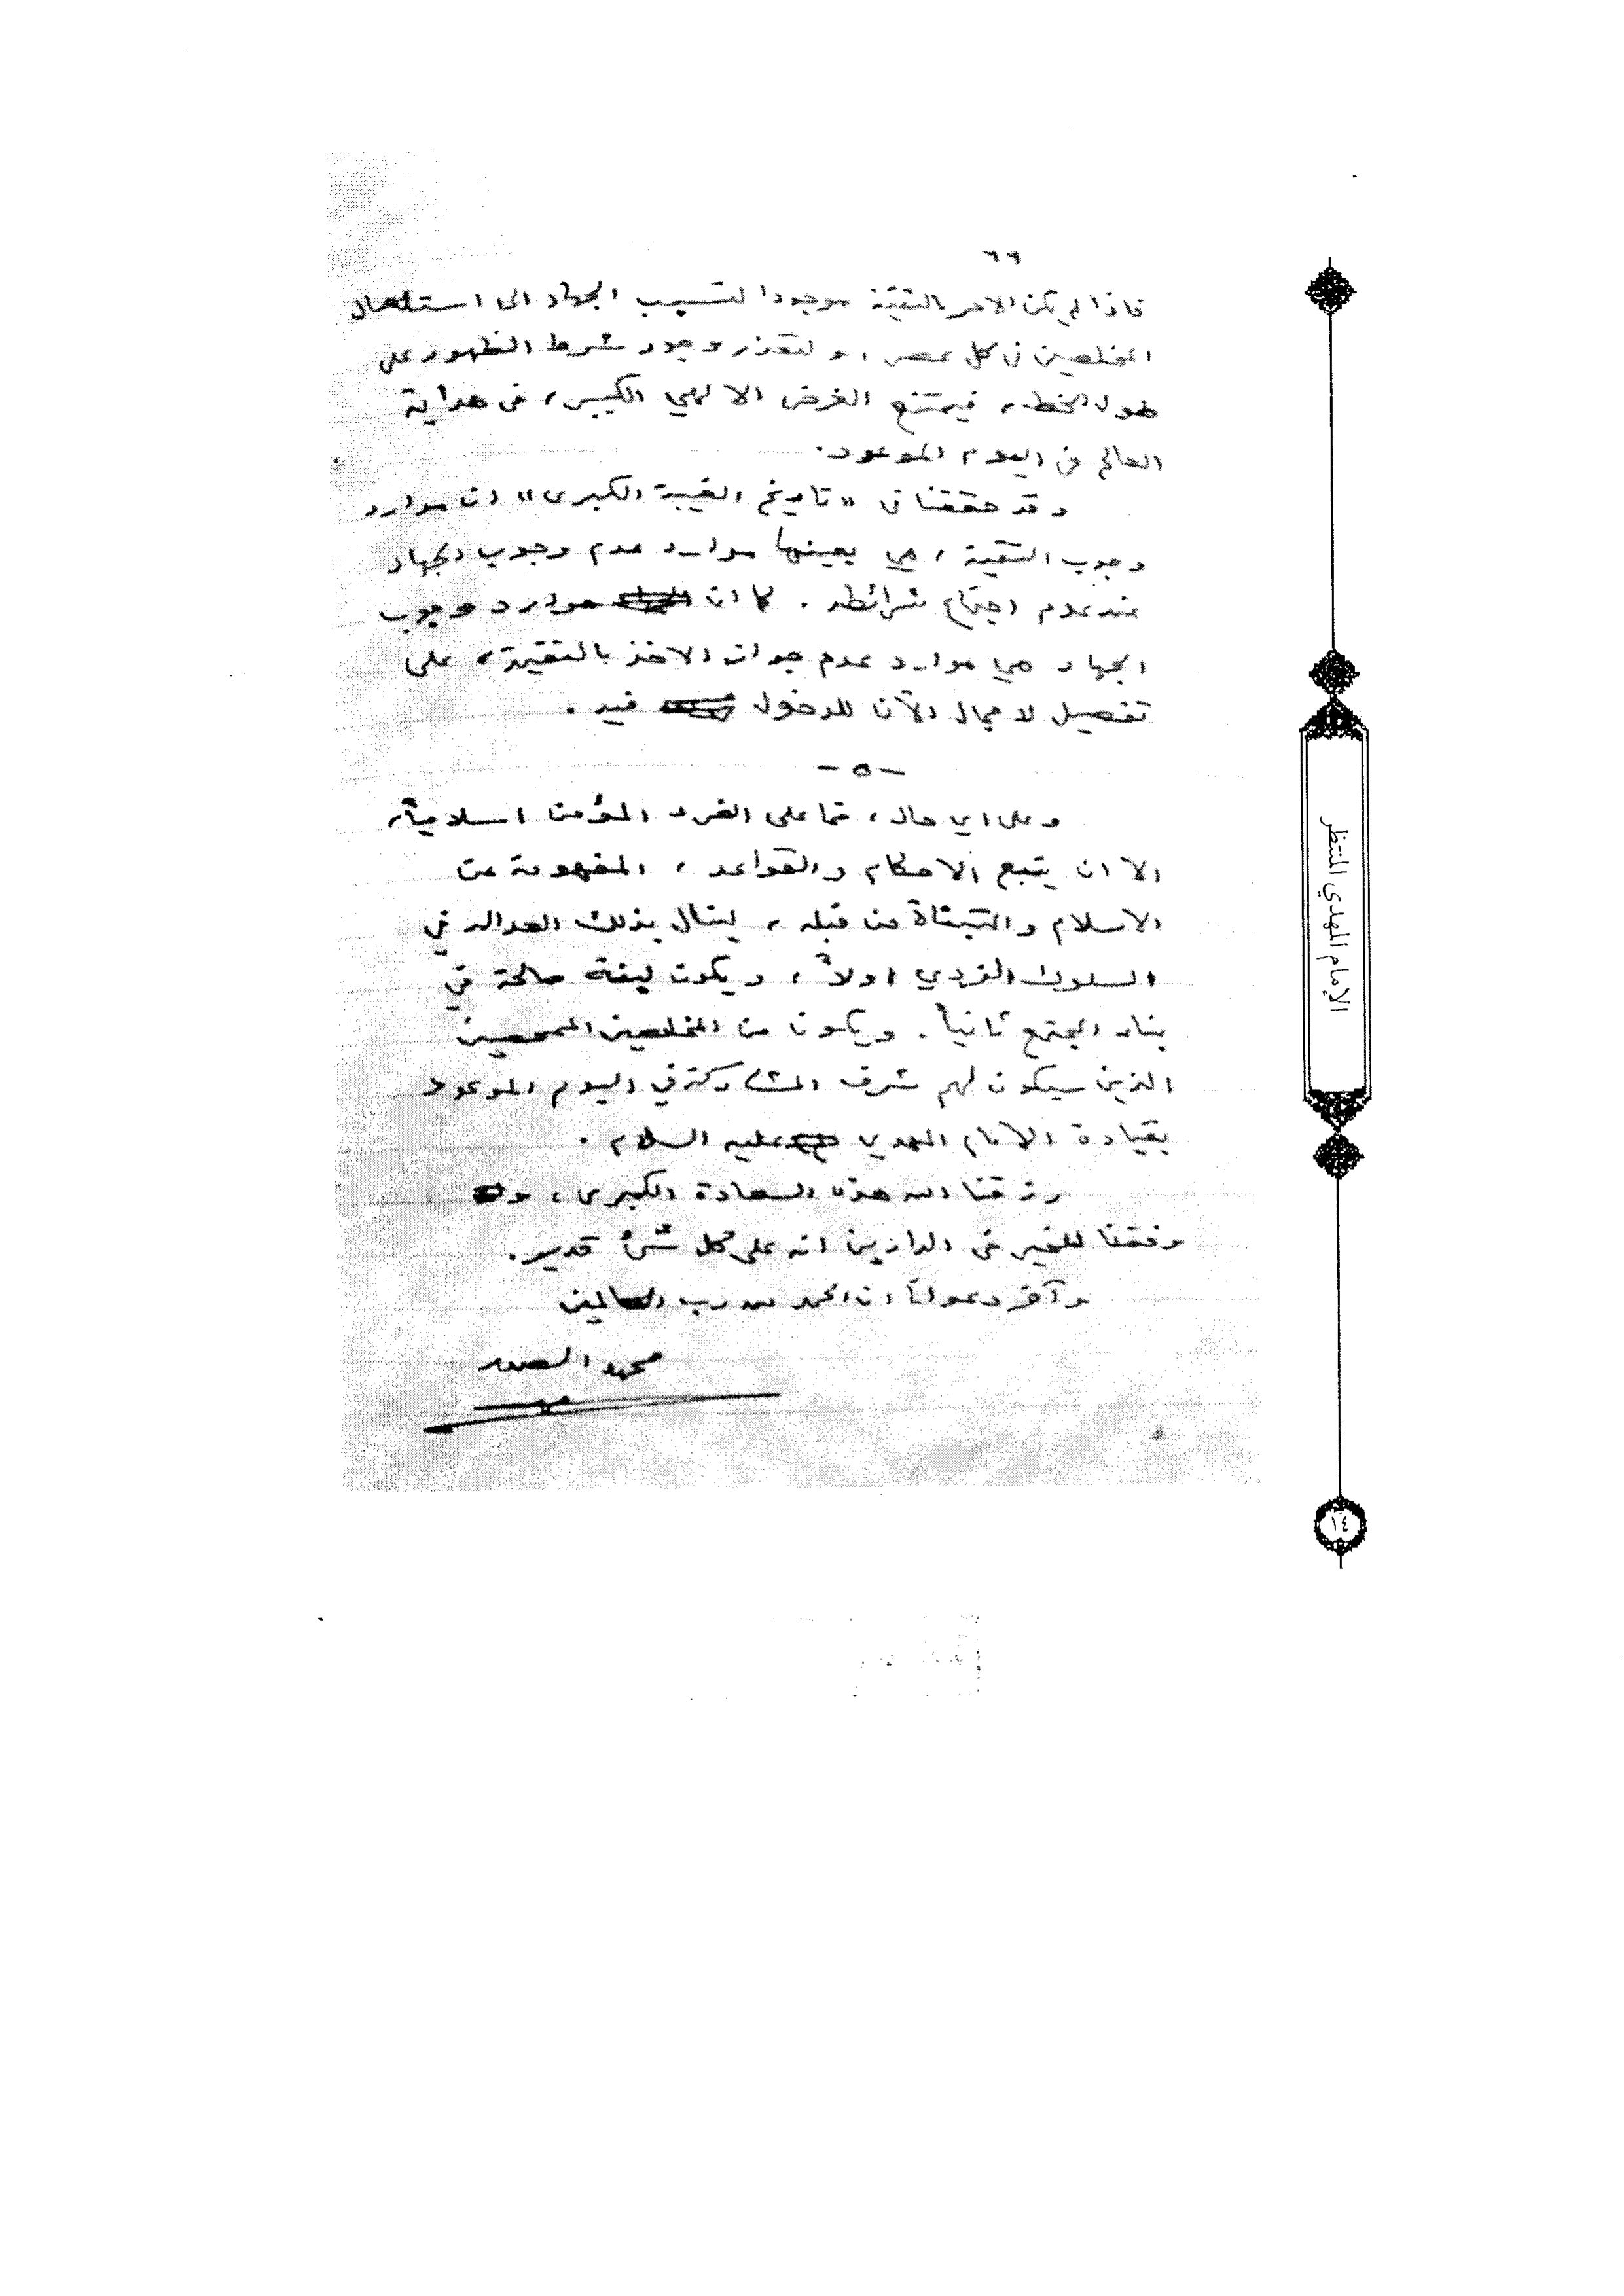 ٦٦
فاذا لم يكن الامر بالتقية موجودا لتسبب الجهاد الى استئصال
المخلصين في كل عصر، ولتعذر وجود شرط الظهور على
طول الخط، فيمتنع الغرض الالهي الكبير، في هداية
العالم في اليوم الموعود.
وقد حققنا في «تاريخ الغيبة الكبرى» ان موارد
وجوب التقية، هي بعينها موارد عدم وجوب الجهاد
عند عدم اجتماع شرائطه. كما ان موارد وجوب
الجهاد هي موارد عدم جواز الاخذ بالتقية، على
تفصيل لا مجال الآن للدخول فيه.
- ٥ -
وعلى اي حال، فما على الفرد المؤمن اسلامياً،
الا ان يتبع الاحكام والقواعد، المفهومة عن
الاسلام والمتبناة من قبله، لينال بذلك العدالة في
السلوك الفردي اولاً، ويكون لبنة صالحة في
بناء المجتمع ثانياً. ويكون من المخلصين الممحصين
الذين سيكون لهم شرف المشاركة في اليوم الموعود
بقيادة الامام المهدي عليه السلام.
رزقنا الله هذه السعادة الكبرى، و
وفقنا للخير في الدارين انه على كل شيء قدير.
وآخر دعوانا ان الحمد لله رب العالمين
محمد الصدر
الإمام المهدي المنتظر
١٤